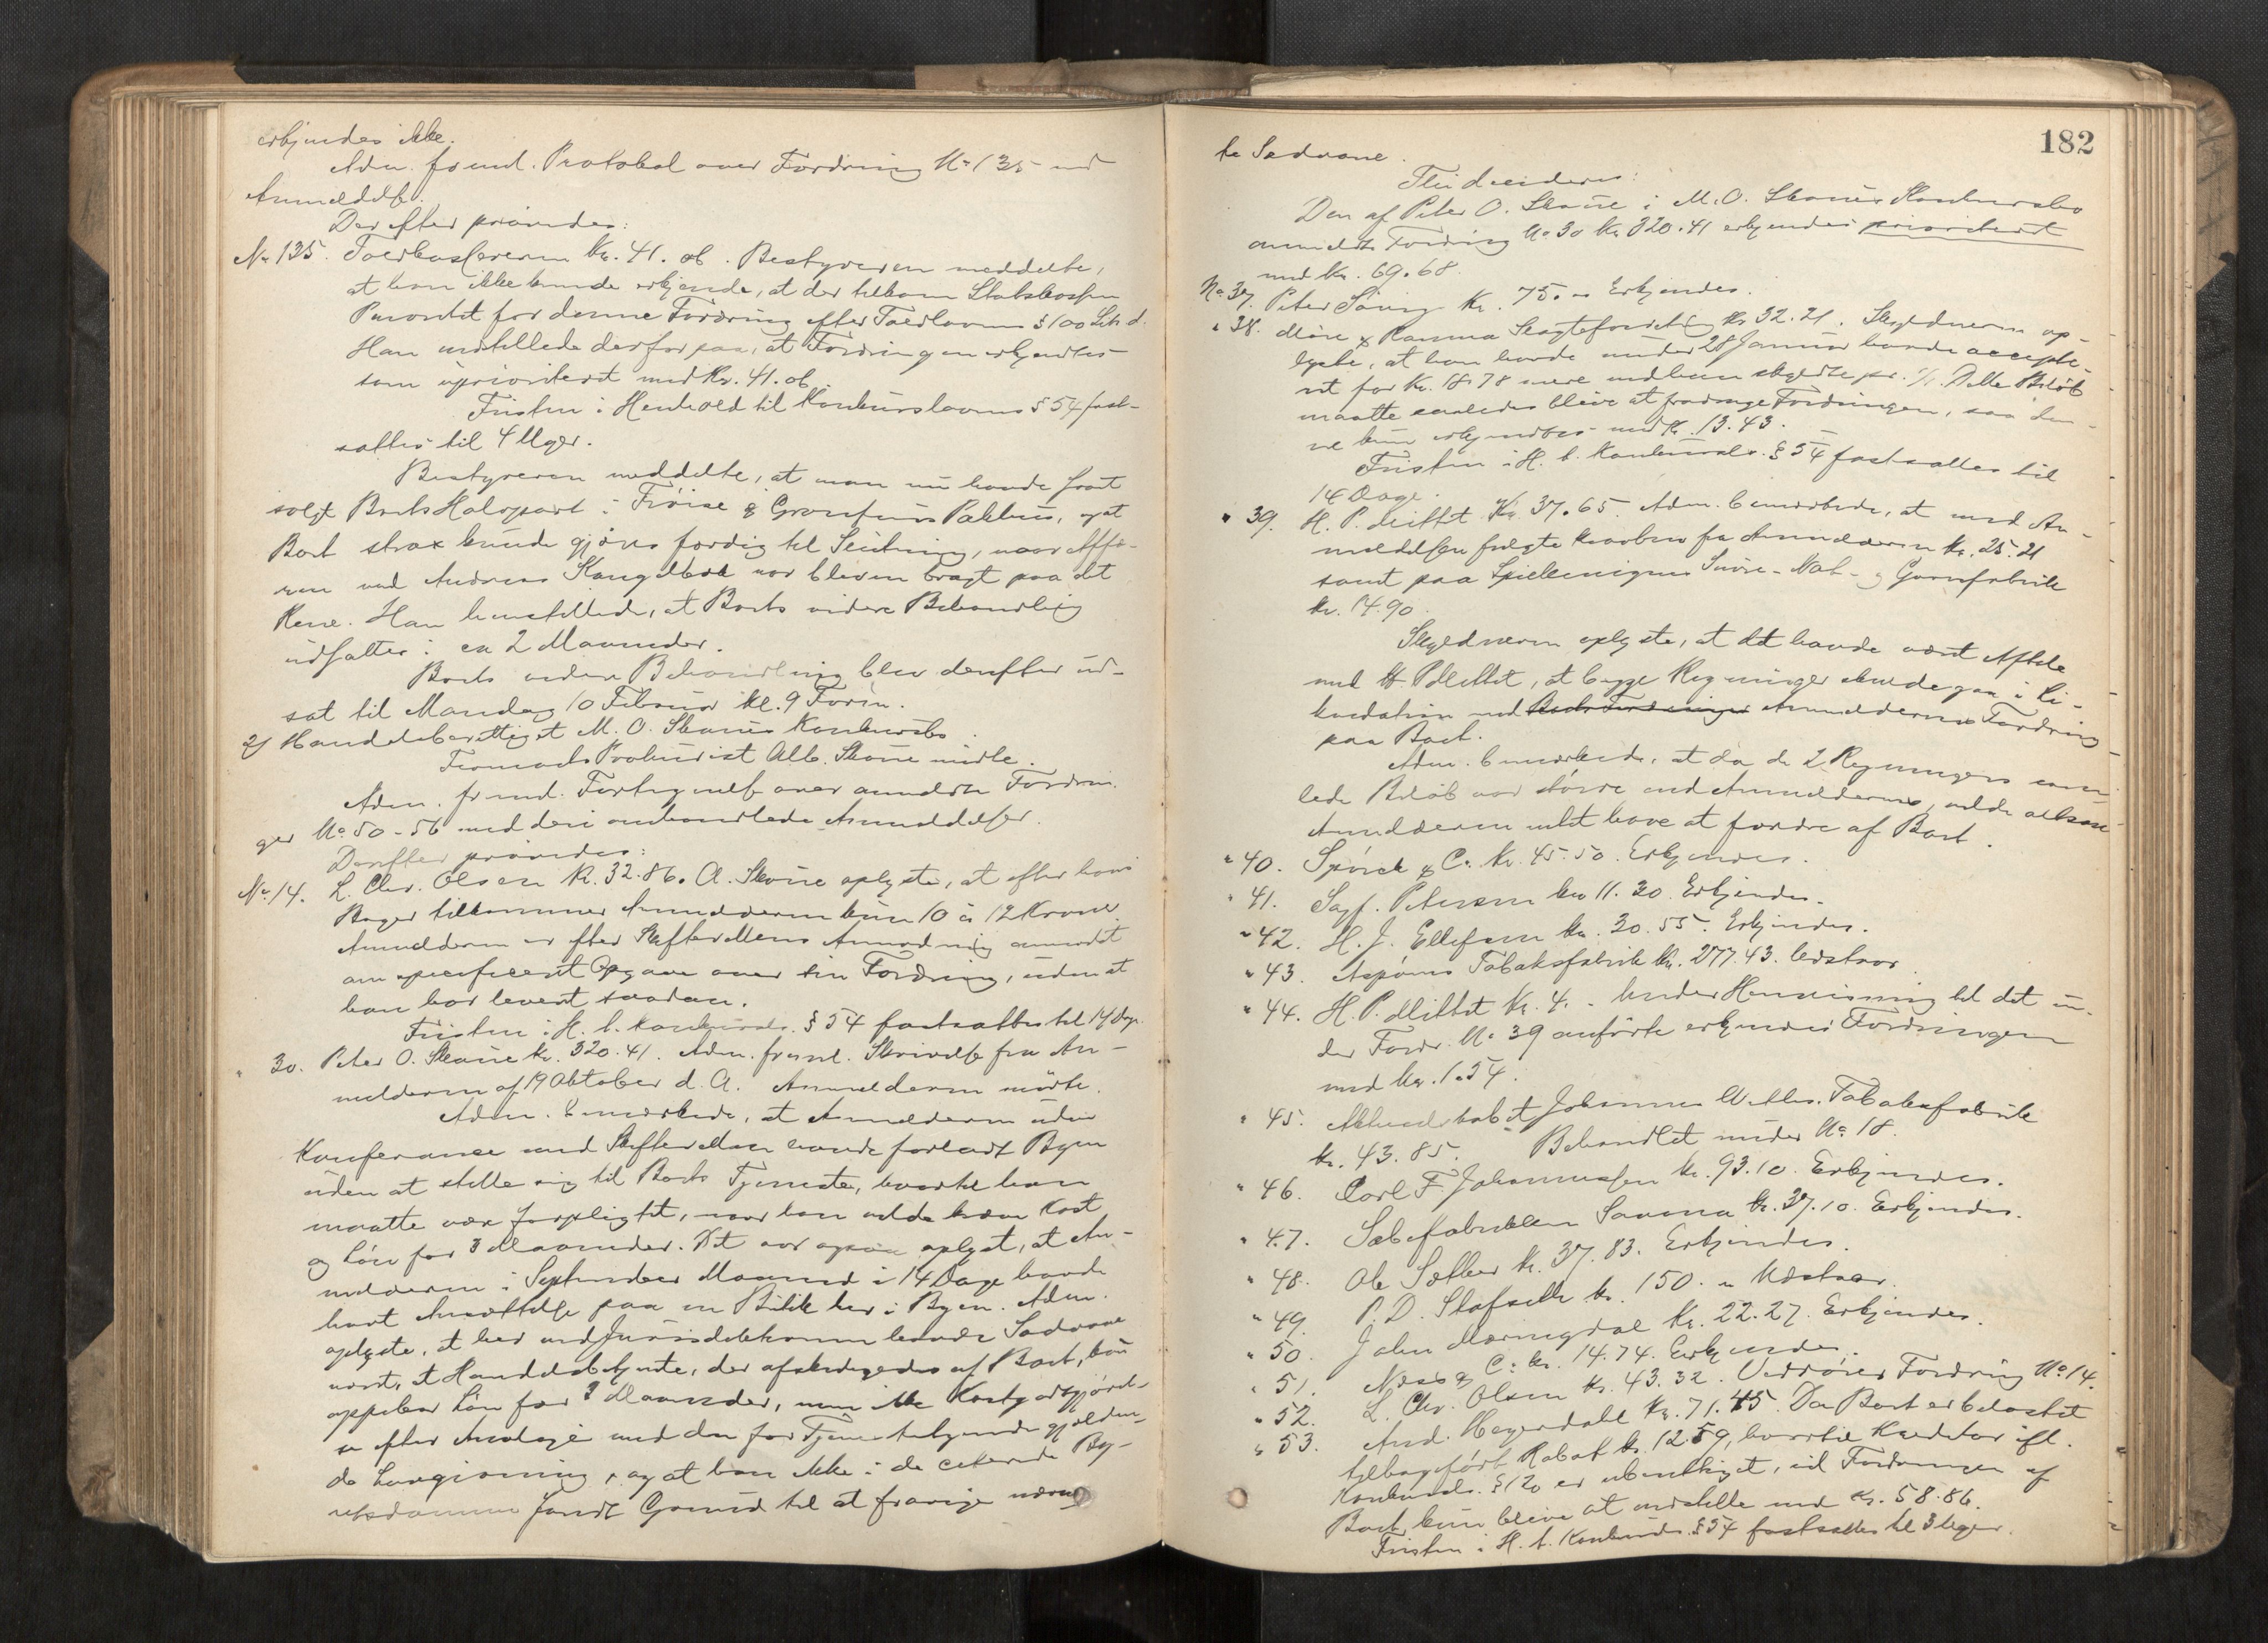 erkjendes ikke.
Adm. freml. Protokol over Fordring No 135 med
Anmeldelse.
Derefter prøvedes:
No 135. Toldkassereren Kr. 41.06. Bestyreren meddelte,
at han ikke kunde erkjende, at der tilkom Statskassen
Prioritet for denne Fordring efter Toldlovens § 100 Litr. d.
Han indstillede derfor paa, at Fordringen erkjendtes
som uprioriteret med Kr. 41.06.
Fristen i Henhold til Konkurslovens § 54 fast-
sattes til 4 Uger.
Bestyreren meddelte, at man nu havde faaet
solgt Boets Halvpart i Pakhus, og at
Boet strax kunde gjøres færdig til Slutning, naar Affæ-
ren med Andreas var bleven bragt paa det
Rene. Han henstillede, at Boets videre Behandling
udsattes i ca 2 Maaneder.
Boets videre Behandling blev derefter ud-
sat til Mandag 10 Februar kl. 9 Form.
2) Handelsberettiget M. O. Skaues Konkursbo
Firmaets Prokurist Alb. Skaue mødte.
Adm. freml. Fortegnelse over anmeldte Fordrin-
ger No 50-56 med deri omhandlede Anmeldelser.
Derefter prøvedes:
No 14. L. Chr. Olsen Kr. 32.86. A. Skaue oplyste, at efter hans
Bøger tilkommer Anmelderen kun 10 à 12 Kroner.
Anmelderen er efter Skifterettens Anmodning anmodet
om specificeret Opgave over sin Fordring, uden at
han har leveret saadan.
Fristen i H. t. Konkursl. § 54 fastsattes til 14 Dage.
" 30. Peter O. Skaue kr. 320.41. Adm. freml. Skrivelse fra An-
melderen af 19 Oktober d. A. Anmelderen mødte.
Adm. bemærkede, at Anmelderen uden
Konferance med Skifteretten havde forladt Byen
uden at stille sig til Boets Tjeneste, hvortil han
maatte være forpligtet, naar han vilde kræve Kost
og Løn for 3 Maaneder. Det var ogsaa oplyst, at An-
melderen i September Maaned i 14 Dage havde
havt Ansættelse paa en Butik her i Byen. Adm.
oplyste, at her ved Jurisdiktionen havde Sædvane
været, at Handelsbetjente, der afskedigedes af Boet, kun
oppebar Løn for 3 Maaneder, men ikke Kostgodtgjørel-
se efter Analogi med den for Tjenestetyende gjælden-
de Lovgivning, og at han ikke i de citerede By-
retsdomme fandt Grund til at fravige nævn-
182
te Sædvane.
Thi decideres:
Den af Peter O. Skaue i M. O. Skaues Konkursbo
anmeldte Fordring No 30 Kr 320.41 erkjendes prioriteret
med Kr. 69.68.
No 37. Peter Kr. 75.- Erkjendes.
" 38. Møre & Romsa Kr 32.21. Skyldneren op-
lyste, at han havde under 28 Januar havde accepte-
ret for Kr. 18.78 mere end han skyldte pr. Dette Beløb
maatte saaledes blive at fradrage Fordringen, saa den-
ne kun erkjendtes med Kr. 13.43.
Fristen i H. t. Konkursl. § 54 fastsattes til
14 Dage.
" 39. H. P. Kr. 37.65. Adm. bemærkede, at med An-
meldelsen fulgte fra Anmelderen Kr. 25.21
samt paa Snøre- Not- og Garnfabrik
Kr. 14.90.
Skyldneren oplyste, at det havde været Aftale
med H. P., at begge Regninger skulde gaa i Li-
kvidation med Boets Fordringer Anmelderens Fordring
paa Boet.
Adm. bemærkede, at da de 2 Regningers sam-
lede Beløb var større end Anmelderens, vilde altsaa
Anmelderen intet have at fordre af Boet.
" 40. Spørck & Co. Kr. 45.50. Erkjendes.
" 41. Petersen Kr 11.30. Erkjendes.
" 42. H. J. Ellefsen Kr. 30.55. Erkjendes.
" 43. Tobaksfabrik Kr. 277.43. Udstaar.
" 44. H. P. Kr. 4.- Under Henvisning til det un-
der Fordr. No 39 anførte erkjendes Fordringen
med Kr. 1.54.
" 45. Aktieselskabet Johannes Tobaksfabrik
Kr. 43.85. Behandlet under No 18.
" 46. Carl F. Johannessen Kr. 93.10. Erkjendes.
" 47. Sæbefabrikken Savona Kr. 37.10. Erkjendes.
" 48. Ole Sæther Kr. 37.83. Erkjendes.
" 49. P. D. Slafseth Kr. 150.- Udstaar.
" 50. John Kr. 22.27. Erkjendes.
" 51. Næss & Co. Kr. 14.74. Erkjendes.
" 52. L. Chr. Olsen Kr. 43.32. Vedrører Fordring No 14.
" 53. And. Kr. 71.45. Da Boet er belastet
tilbageført Rabat Kr. 12.59, hvortil Kreditor ifl.
Konkursl. § 120 er uberettiget, vil Fordringen af
Boet kun blive at indstille med Kr. 58.86.
Fristen i H. t. Konkursl. § 54 fastsattes til 3 Uger.